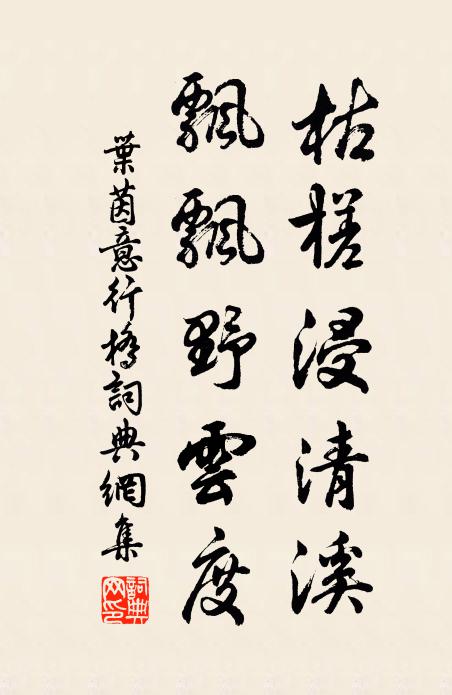 枯槎浸清溪
飄飄野雲度
葉茵意行橋詞典網集
詞典網印